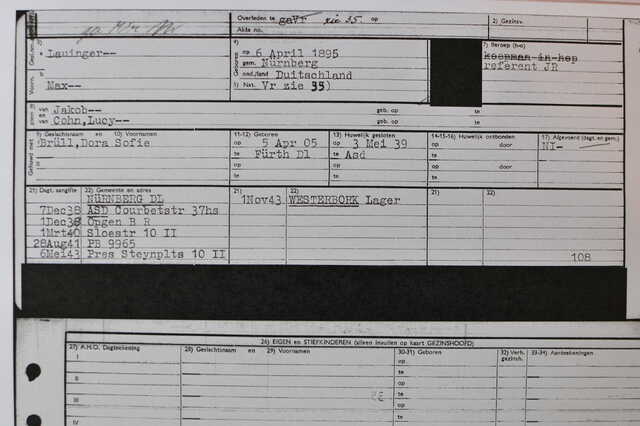 Overleden te gevr zie 35. op
Akte no.
2) Gezinsv.
Lauinger--
Max--
op 6 April 1895
gem. Nürnberg
ond./land Duitschland
Nat. Vr zie 35)
7) Beroep (h-o)
koopman in hop
referent JR
van Jakob-- geb. op te
en
van Cohn,Lucy-- geb. op te
9) Geslachtsnaam en 10) Voornamen
Brüll,Dora Sofie
11-12) Geboren
op 5 Apr 05
te Fürth Dl
13) Huwelijk gesloten
op 3 Mei 39
te Asd
14-15-16) Huwelijk ontbonden
op door
te door
17) Afgevoerd (dagt. en gem.)
NI-
21) Dagt. aangifte 22) Gemeente en adres
NÜRNBERG DL
7Dec38 ASD Courbetstr 37hs
1Dec38 Opgen B R
1Mrt40 Sloestr 10 II
28Aug41 PB 9965
6Mei43 Pres Steynplts 10 II
21) 22)
1Nov43 WESTERBORK Lager
21) 22)
108
26) EIGEN en STIEFKINDEREN (alleen invullen op kaart GEZINSHOOFD)
27) A.H.O. Dagtekening 28) Geslachtsnaam en 29) Voornamen 30-31) Geboren 32) Verh. gezinsh. 33-34) Aantekeningen
op
te
II op
te
III op
te
IV op